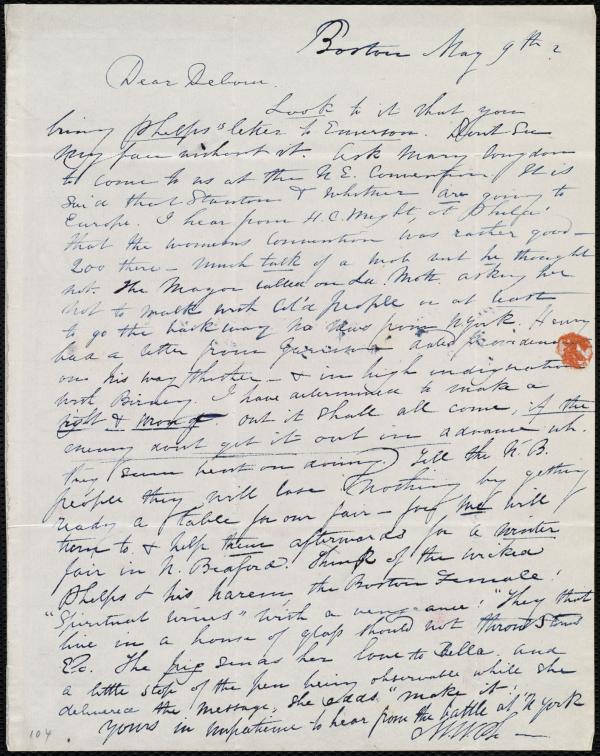 Boston May 9th
Dear Debora.
Look to it that you
bring Phelps' letter to Emerson. Dont see
my face without it. Ask Mary Congdon
to come to us at the N.E. Convention. It is
said that Stanton & Whittier are going to
Europe. I hear from H.C. Wright, at Phila:
that the womens convention was rather good—
200 there— much talk of a mob but he thought
not. The Mayor called on Lu. Mott. asking her
not to walk with col'd people or at least
to go the back way No news from N York. Henry
had a letter from dated Providence
on his way thither— & in high indignation
with Birney. I have determined to make a
right & wrong. out it shall all come, if the
enemy dont get it out in advance wh.
they seem bent on doing. Tell the N. B.
people they will lose nothing by getting
ready a table for our fair— for we will
turn to & help them afterwards for a winter
fair in N. Bedford. Think of the wicked
Phelps & his harem, the Boston Female!
"Spiritual wives" with a vengeance! "They that
live in a house of glass should not throw stones
&c. The pig sends her love to Bella. and
a little stop of the pen being observable while she
delivered the message, she adds "make it!"
Yours in impatience to hear from the battle at N York
104